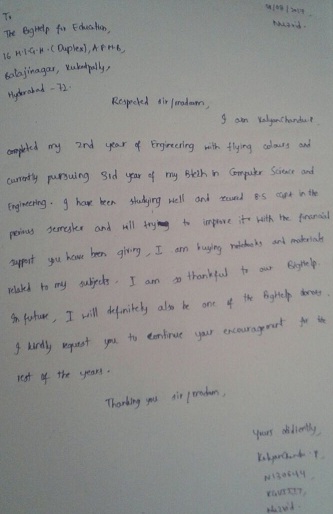 To
The BigHelp for Education,
16 M.I.G.H. (Duplex), A.P.H.B,
Balajinagar, Kukatpally,
Hyderabad - 72.
Nuzvid.
Respected sir/madam,
I am KalyanChandu.P,
completed my 2nd year of Engineering with flying colours and
currently pursuing 3rd year of my Btech in Computer Science and
Engineering. I have been studying well and scored 8.5 CGPA in the
previous semester and will try to improve it. With the financial
support you have been giving, I am buying notebooks and materials
related to my subjects. I am so thankful to our BigHelp.
In future, I will definitely also be one of the BigHelp donors.
I kindly request you to continue your encouragement for the
rest of the years.
Thanking you sir/madam,
Yours obidiently,
KalyanChandu.P,
Nuzvid.